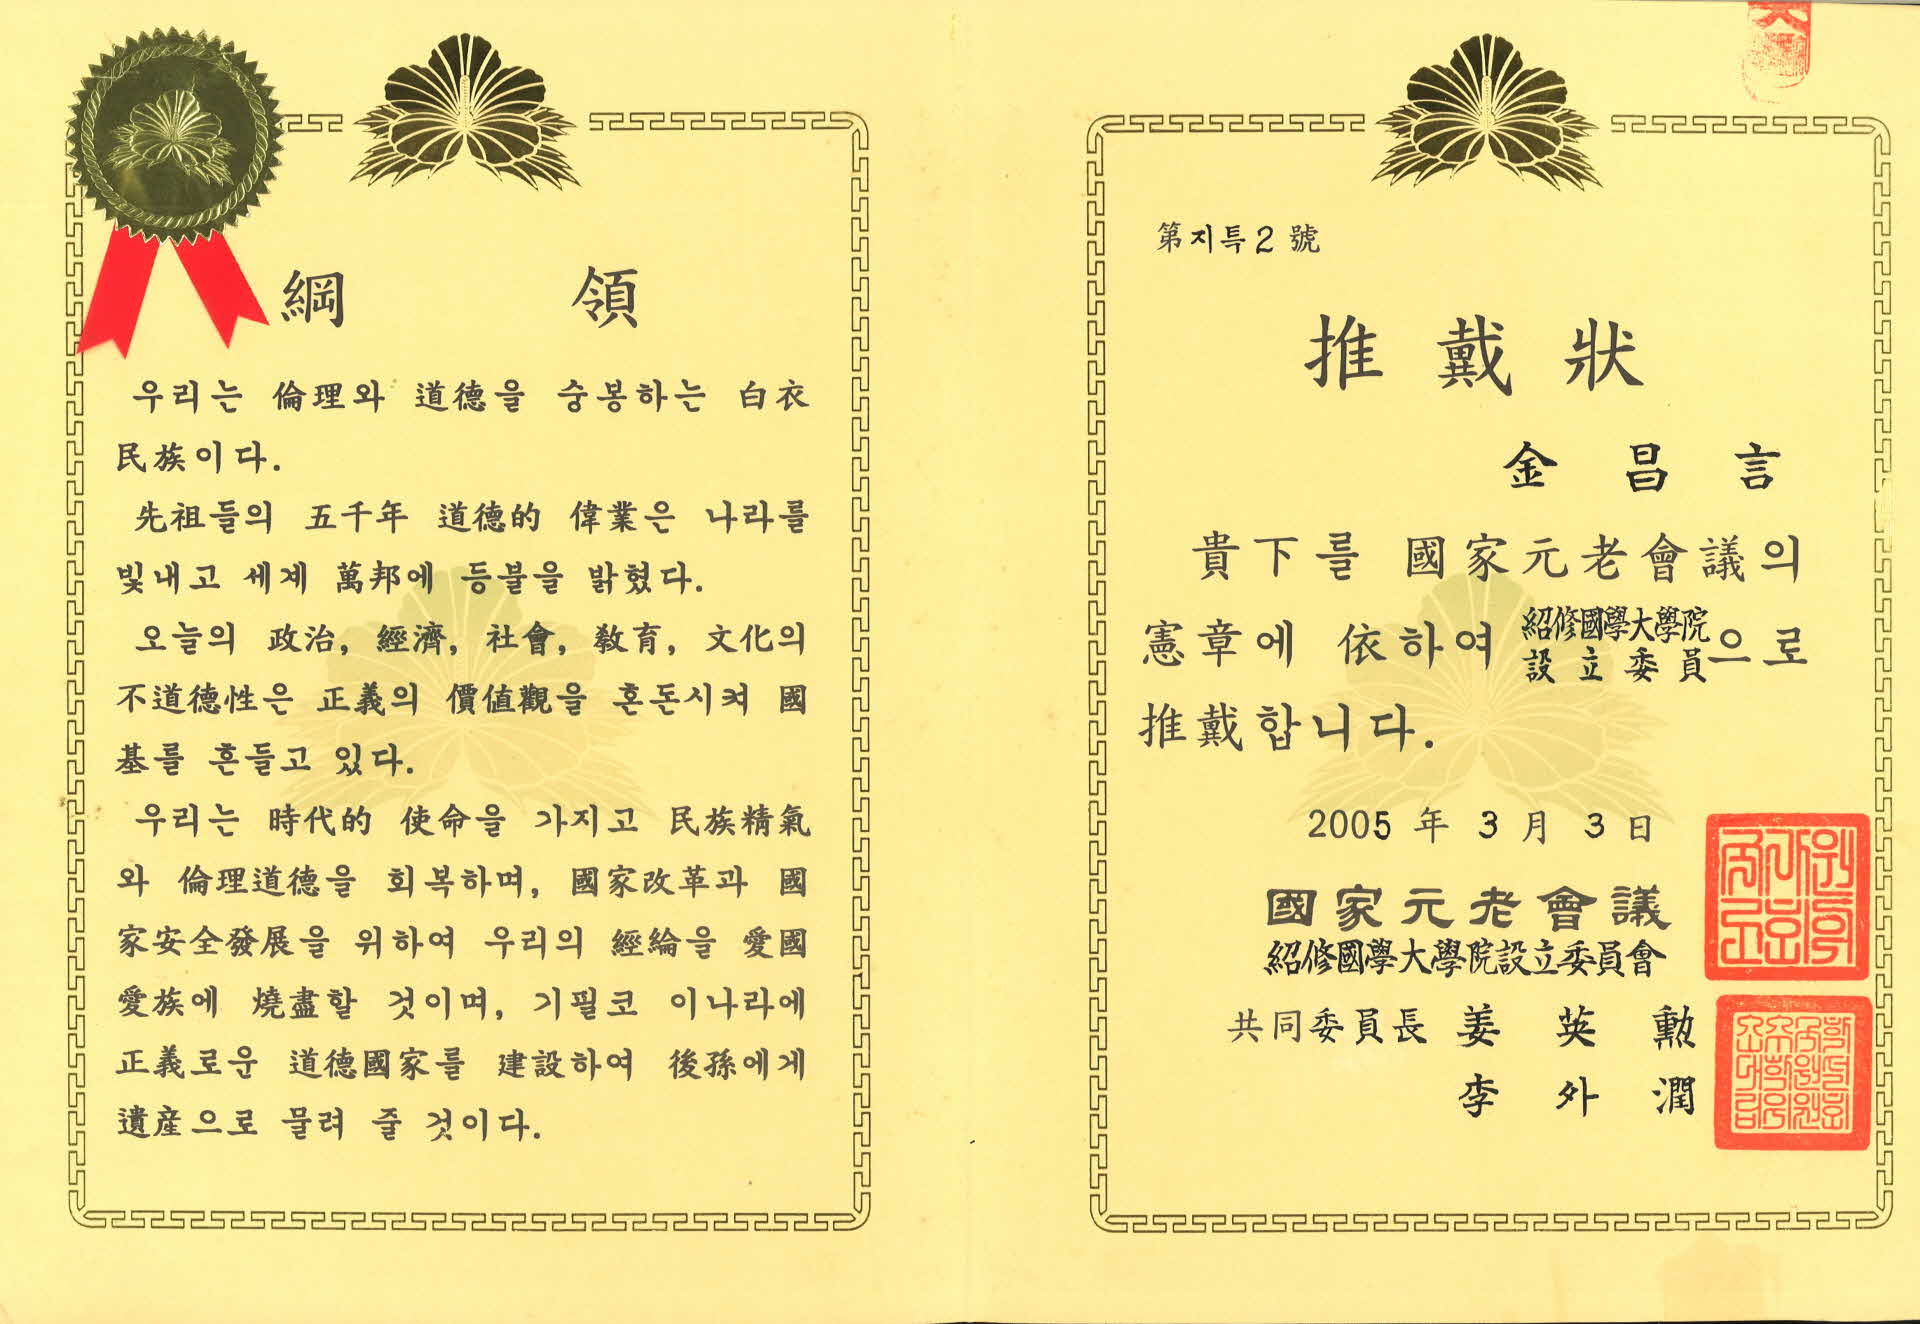 綱 領
우리는 倫理와 道德을 숭봉하는 白衣
民族이다.
先祖들의 五千年 道德的 偉業은 나라를
빛내고 세계 萬邦에 등불을 밝혔다.
오늘의 政治, 經濟, 社會, 敎育, 文化의
不道德性은 正義의 價値觀을 혼돈시켜 國
基를 흔들고 있다.
우리는 時代的 使命을 가지고 民族精氣
와 倫理道德을 회복하며, 國家改革과 國
家安全發展을 위하여 우리의 經綸을 愛國
愛族에 燒盡할 것이며, 기필코 이나라에
正義로운 道德國家를 建設하여 後孫에게
遺産으로 물려 줄 것이다.
第지특2號
推戴狀
金昌言
貴下를 國家元老會議의
憲章에 依하여 紹修國學大學院
設立委員으로
推戴합니다.
2005年 3月 3日
國家元老會議
紹修國學大學院設立委員會
共同委員長 姜英勳
李外潤